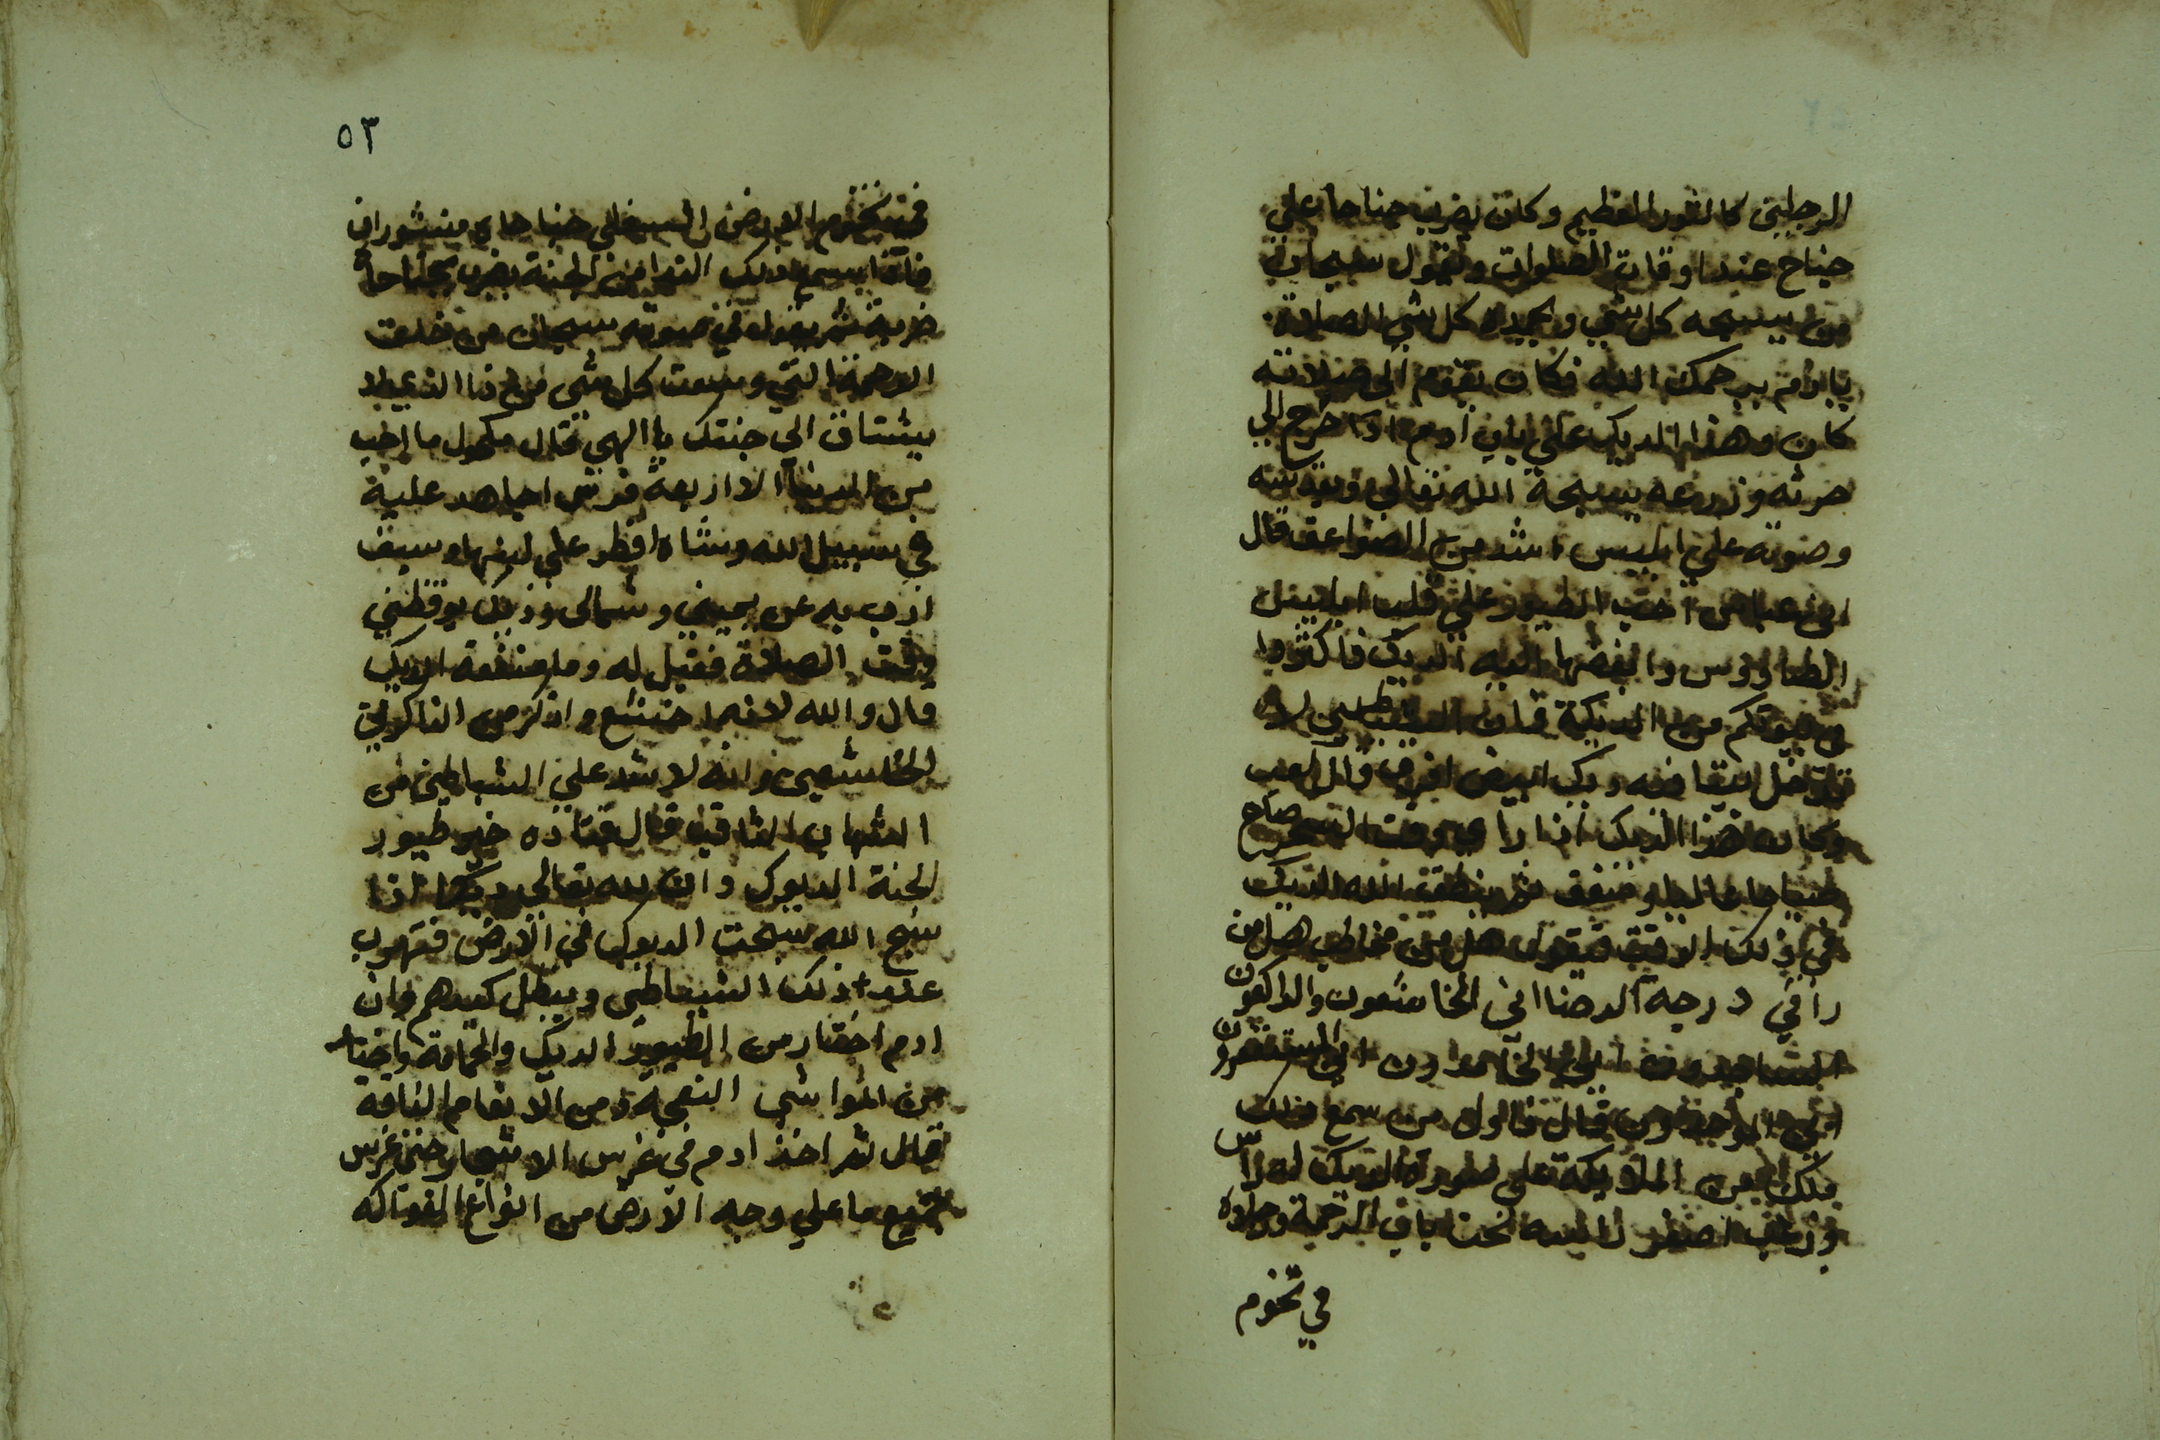 الرجلين كالثور العظيم وكان يضرب جناحا على
جناح عند اوقات الصلوات وتقول سبحان
من يسبحه كل شي وبحمده كل شي الصلاة
يا ادم يرحمك الله فكان يقوم الى صلاته
كان وهذا الديك على باب ادم اذا خرج الي
حرثه وزرعه يسبحة الله تعالى ويقدسه
وصوته علي ابليس اشد من الصواعق قال
ابن عباس احب الطيور علي قلب ابليس
الطاووس وابغضها اليه الديك فاكثروا
في بيوتكم من الديكة فان الشيطان لا
يدخل بيتا فيه ديك ابيض افرق قال
وكان هذا الديك اذا راي وقت السحر صاح
صياحا عاليا وصفق ثم ينطق الله الديك
في ذلك الوقت فيقول هل من مخاطب هل من
راقي درجة الرضا اين الخاشعون والراكعون
الشاهدون اين الحامدون اين المستغفرون
اين قال فاول من سمع ذلك
ملك من الملايكة على صورة الديك له راس
وزغب اصفر راسه تحت باب الرحمة ورجلاه
في تخوم
٥٣
في تخوم الارض السفلي جناحاه منشوران
فاذا سمع ذلك الندا من الجنة يضرب بجناحه
ضربة ثم يقول في صوته سبحان من خلقت
الرحمة التي وسعت كل شي من ذا الذي لا
يشتاق الي جنتك يا الهي فقال مكحول ما احب
من الدنيا الا اربعة فرس اجاهد علية
في سبيل الله وشاة افطر علي لبنها وسيف
اذب به عن يميني وشمالي وديك يوقظني
وقت الصلاة فقيل له وما منفعة الديك
قال والله لانه اخشع واذكر من الذاكرين
الخاشعين وانه لاشد علي الشياطين من
الشهاب الثاقب قال قتاده خير طيور
الجنة الديوك وان لله تعالي ديكا اذا
سبح الله سبحت الديوك في الارض فتهرب
عند ذلك الشياطين ويبطل كيدهم وان
ادم اختار من الطيور الديك والحمامة واختار
من المواشي النعجة ومن الانعام الناقة
قال ثم اخذ ادم في غرس الاشجار حتي غرس
جميع ما علي وجه الارض من انواع الفواكه